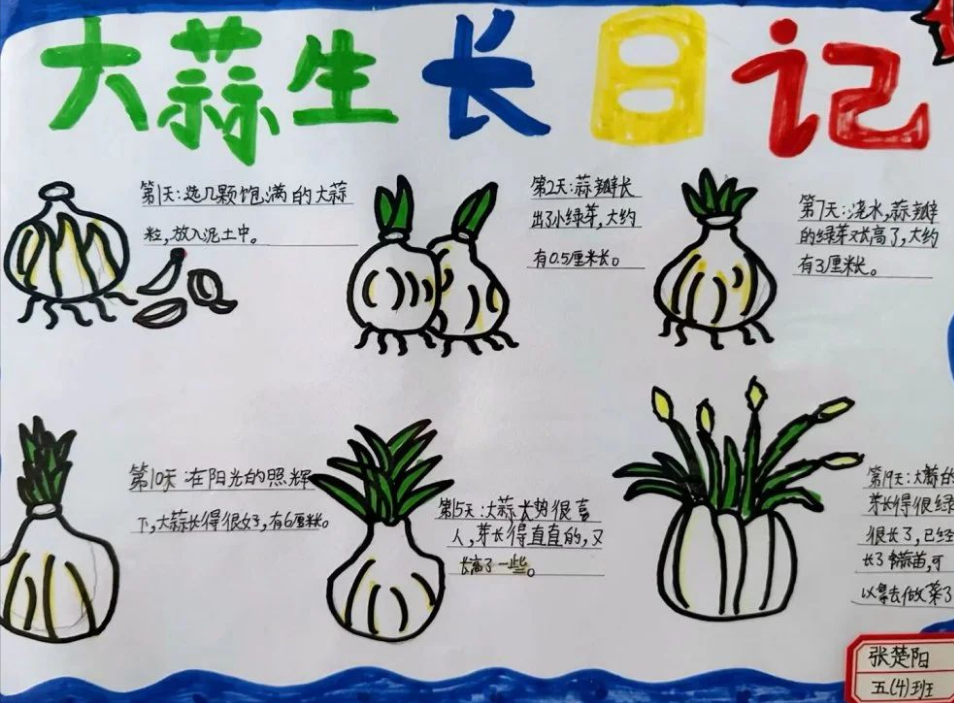 大蒜生长日记
第1天:选几颗饱满的大蒜
粒,放入泥土中。
第2天:蒜瓣长
出了小绿芽,大约
有0.5厘米长。
第7天:浇水,蒜瓣
的绿芽又长高了,大约
有3厘米长。
第10天:在阳光的照辉
下,大蒜长得很好,有6厘米。
第15天:大蒜长势很喜
人,芽长得直直的,又
长高了一些。
第19天:大蒜的
芽长得很绿
很长了,已经
长了蒜苗,可
以拿去做菜了
张楚阳
五(4)班